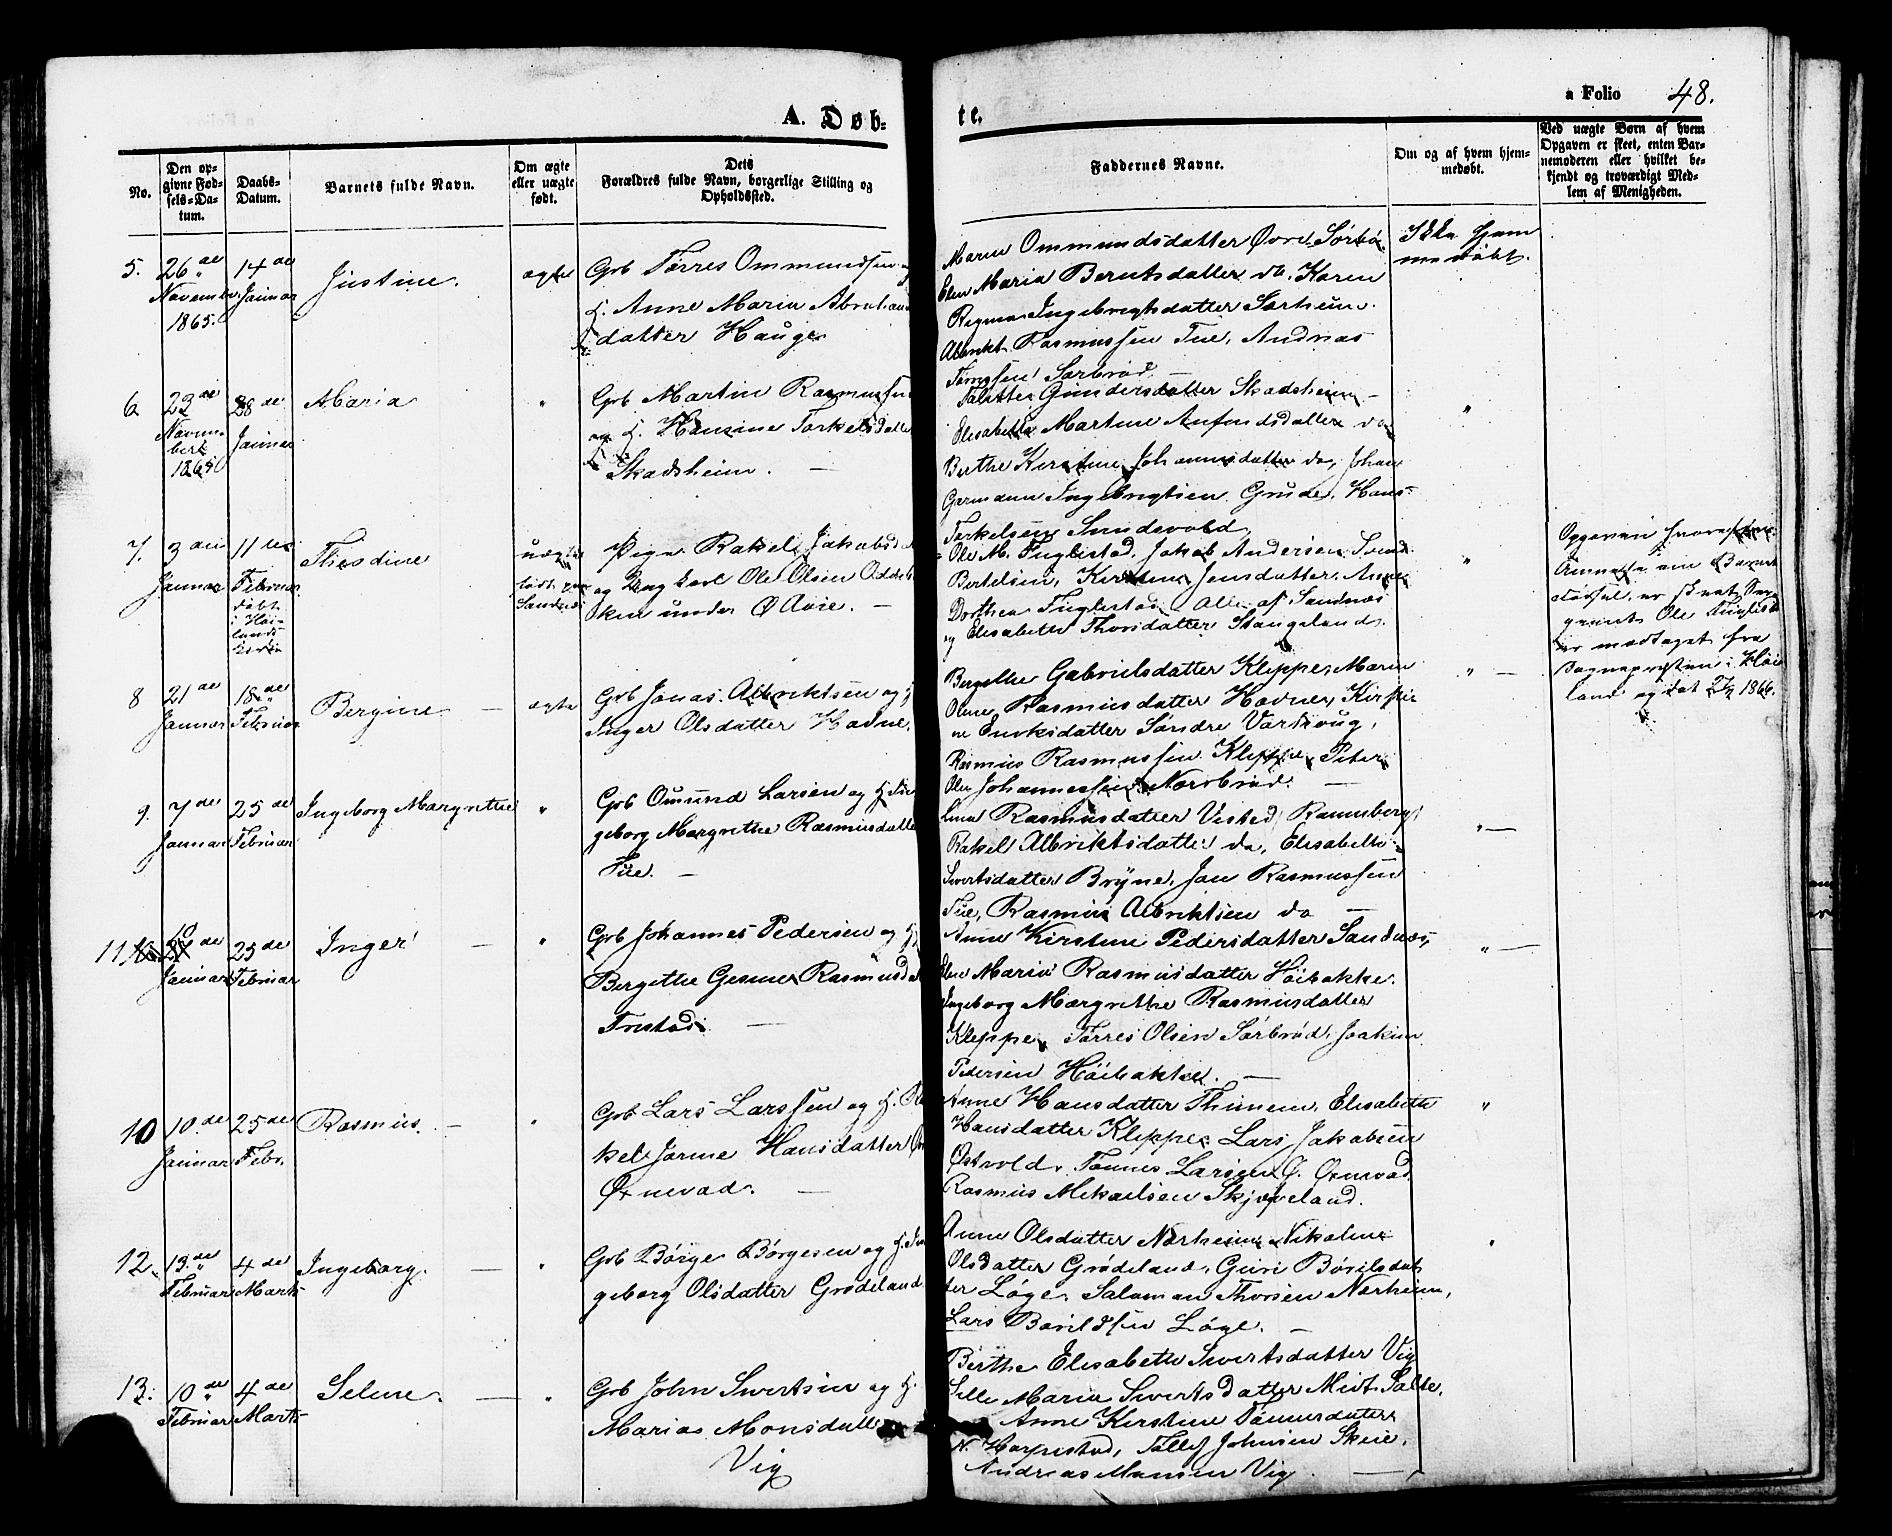 A. Døb-
te.
a Folio 48.
No.
Den op-
givne Fød-
sels-Da-
tum.
Daabs-
Datum.
Barnets fulde Navn.
Om ægte
eller uægte
født.
Dets
Forældres fulde Navn, borgerlige Stilling og
Opholdssted.
Faddernes Navne.
Om og af hvem hjem-
medøbt.
Ved uægte Børn af hvem
Opgaven er skeet, enten Bar-
nemoderen eller hvilket be-
kjendt og troværdigt Med-
lem af Menigheden.
5.
26de
November
1865.
14de
Januar
Justine.
ægte
Grb Tørres Ommundsen
H. Anne Maria Abraham
datter Hauge
Maren Ommundsdatter Øvre Sørbø
Elen Maria Berntsdatter do. Karen
Regine Ingebrigtsdatter Sørheim.
Albrikt Rasmussen Tue, Andreas
Tørresen Sørbrød. —
Ikke hjem
medøbt.
6
23de
Novem-
ber
1865
28de
Januar
Maria
"
Grb Martin Rasmussen
og H. Hansine Torkelsdatter
Skadsheim. —
Gundersdatter Skadsheim —
Elisabeth Martine Anfindsdatter do
Berthe Kirstine Johannesdatter do, Johan
Ingebrigtsen Grude, Hans
Torkelsen Sundevold
"
7.
3die
Januar
11te
Februar
døbt
i Høi-
lands
Kirke
Theodine
uægte
født paa
Sandnæs
Pige Rakel Jakobsd
og Ungkarl Ole Olsen Odde
ken under Avie. —
Ole M. Fuglestad, Jakob Andersen
Bertelsen, Kirstine Jensdatter, Anne
Dorthea Fuglestad Alle af Sandnæs
og Elisabeth Thorsdatter Stangeland.
"
Opgaven
om Barnets
Ole Fuglestad
er modtaget fra
Sognepresten i Høi
land og 1866.
8
21de
Januar
18de
Februar
Bergine —
ægte
Grb Jonas Albriktsen og H
Inger Olsdatter Hodne.
Bergithe Gabrielsdatter Kleppe, Maren
Oline Rasmusdatter Hodne, Kirsti
ne Enoksdatter Søndre Varhoug,
Rasmus Rasmussen Kleppe, Peter
Olen Johannessen Norrbrød. —
" —
9.
7de
Januar
25de
Februar
Ingeborg Margrethe
"
Grb Omund Larsen og H. In
geborg Margrethe Rasmusdatter
Tue. —
Lena Rasmusdatter Visted, Raunsberg
Rakel Albriktsdatter do, Elisabeth
Sivertsdatter Bryne, Jan Rasmussen
Tue, Rasmus Albriktsen do —
" —
11
de
Januar
25de
Februar
Inger —
"
Grb Johannes Pedersen og H
Bergethe Gesine Rasmusd
Fristad. —
Anne Kirstine Pedersdatter Sandnæs,
Elen Maria Rasmusdatter Høibakke.
Ingeborg Margrethe Rasmusdatter
Kleppe, Tørres Olsen Sørbrød, Joakim
Pedersen Høibakke. —
" —
10
10de
Januar
25de
Febr.
Rasmus. —
"
Grb Lars Larssen og H. Ra
kel Jorine Hansdatter
Ørnevad. —
Anne Hansdatter Thimem, Elisabeth
Hansdatter Kleppe, Lars Jakobsen
Østvold, Tønnes Larsen Ø. Ørnevad
Rasmus Mikaelsen Skjæveland.
"
12.
13de
Februar
4de
Marts
Ingeborg. —
"
Grb Børge Børgesen og H. In
geborg Olsdatter Grødeland
Anne Olsdatter Norheim, Nikoline
Olsdatter Grødeland, Guri Børilsdat
ter Løge, Salamon Thorsen Norheim,
Lars Borildsen Løge. —
"
13.
10de
Februar
4de
Marts
Seline. —
"
Grb John Sivertsen og H.
Maria Monsdatter
Vig
Berthe Elisabeth Sivertsdatter Vig
Sille Maria Sivertsdatter Midt Salte,
Anne Kirstine Tønnesdatter
N. Harpestad, Tollef Johnsen Skeie,
Andreas Monsen Vig. —